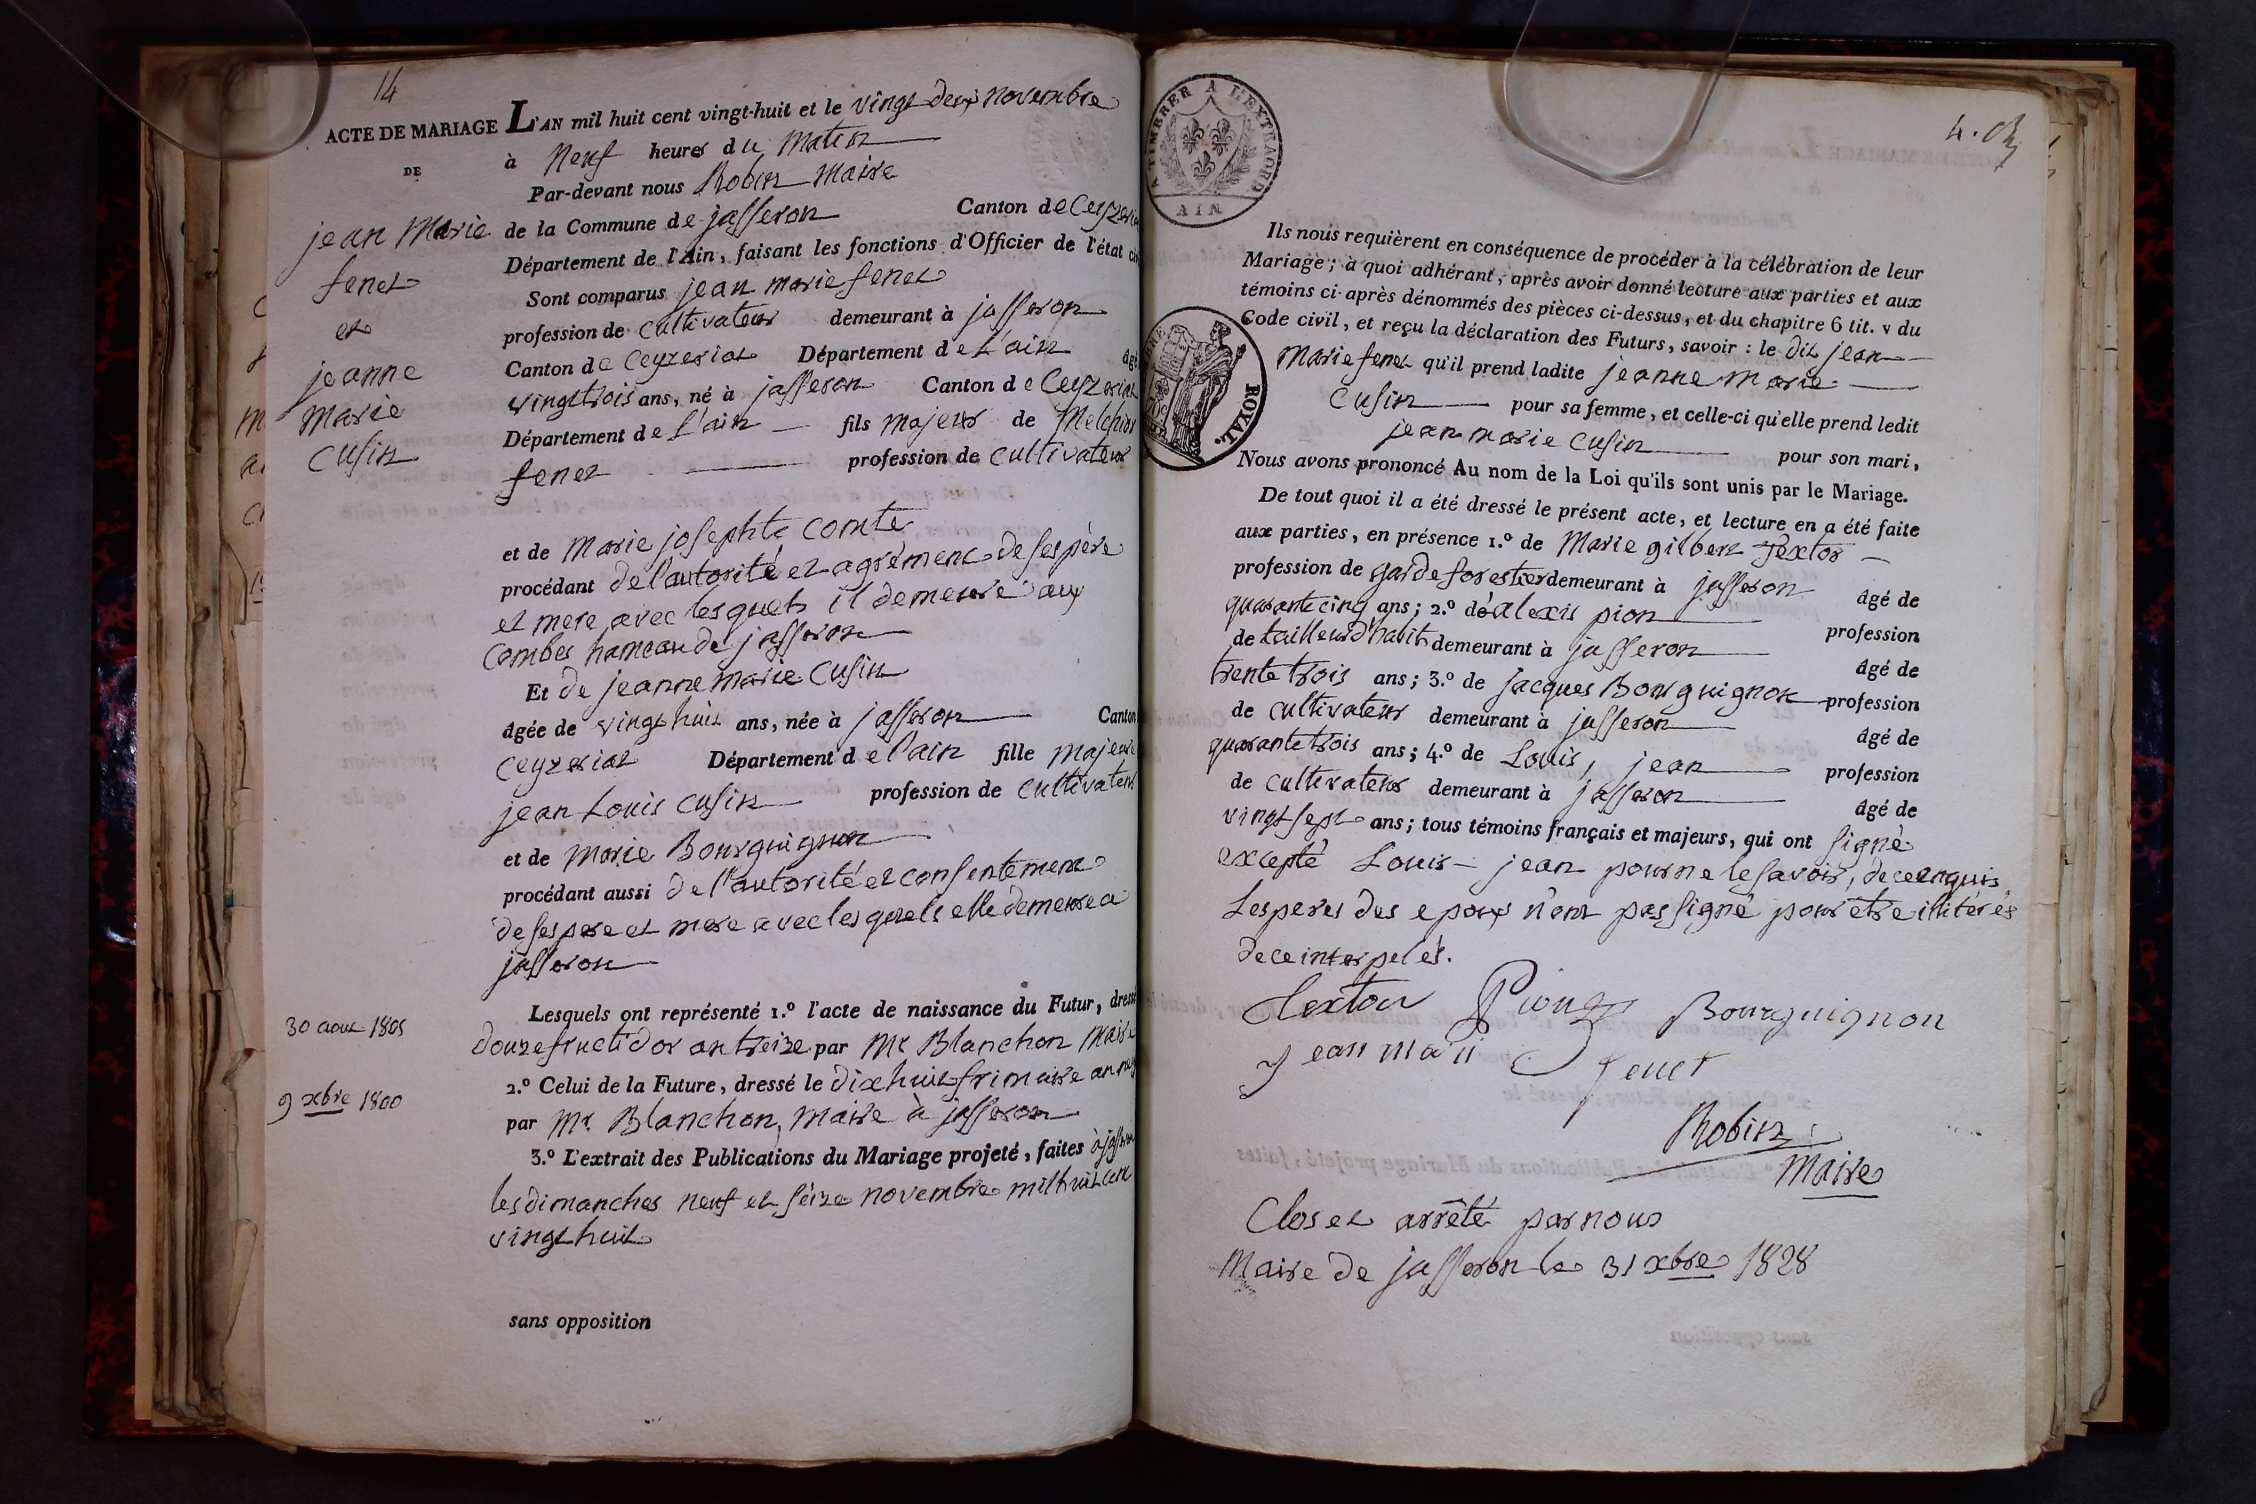 14
ACTE DE MARIAGE
DE
jean Marie
fenet
et
jeanne
marie
Cusin
30 aout 1805
9 xbre 1800
L'AN mil huit cent vingt-huit et le vingt deux novembre
à Neuf heures du Matin
Par-devant nous Robin Maire
de la Commune de jasseron Canton de Ceyzeriat
Département de l'Ain, faisant les fonctions d'Officier de l'état ci
Sont comparus jean marie fenet
profession de cultivateur demeurant à jasseron
Canton de Ceyzeriat Département de L'ain âgé
vingt trois ans, né à jasseron Canton de Ceyzeriat
Département de L'ain fils majeur de Melchior
fenet profession de cultivateur
et de Marie josephte comte
procédant de l'autorité et agrément de ses père
et mere avec lesquels il demeure aux
Combes hameau de jasseron
Et de jeanne marie Cusin
âgée de vingt huit ans, née à jasseron Canton
Ceyzeriat Département de l'ain fille majeure
jean Louis cusin profession de cultivateur
et de Marie Bourguignon
procédant aussi de l'autorité et consentement
de ses pere et mere avec lesquels elle demeure a
jasseron
Lesquels ont représenté 1.º l'acte de naissance du Futur, dressé
douze fructidor an treize par Mr Blanchon Maire
2.º Celui de la Future, dressé le dix huit frimaire an neuf
par Mr Blanchon, Maire à jasseron
3.º L'extrait des Publications du Mariage projeté, faites à jasseron
les dimanches neuf et seize novembre mil huit cent
vingt huit
sans opposition
A TIMBRER A L'EXTRAORD
AIN
ROYAL.
Ils nous requièrent en conséquence de procéder à la célébration de leur
Mariage; à quoi adhérant, après avoir donné lecture aux parties et aux
témoins ci-après dénommés des pièces ci-dessus, et du chapitre 6 tit. v du
Code civil, et reçu la déclaration des Futurs, savoir : le dit jean
Marie fenet qu'il prend ladite jeanne marie
Cusin pour sa femme, et celle-ci qu'elle prend ledit
jean marie Cusin pour son mari,
Nous avons prononcé Au nom de la Loi qu'ils sont unis par le Mariage.
De tout quoi il a été dressé le présent acte, et lecture en a été faite
aux parties, en présence 1.º de Marie gilbert Textor
profession de garde forestier demeurant à jasseron âgé de
quarante cinq ans; 2.º de alexis pion profession
de tailleur d'habits demeurant à jasseron âgé de
trente trois ans; 3.º de jacques Bourguignon profession
de cultivateur demeurant à jasseron âgé de
quarante trois ans; 4.º de Louis, jean profession
de cultivateur demeurant à jasseron âgé de
vingt sept ans; tous témoins français et majeurs, qui ont signé
excepté Louis jean pour ne le savoir, de ce enquis
Les peres des epoux n'ont pas signé pour etre illiteres
de ce interpelés.
Textor Pion Bourguignon
jean mari fenet
Robin
Maire
Clos et arrêté par nous
Maire de jasseron le 31 xbre 1828